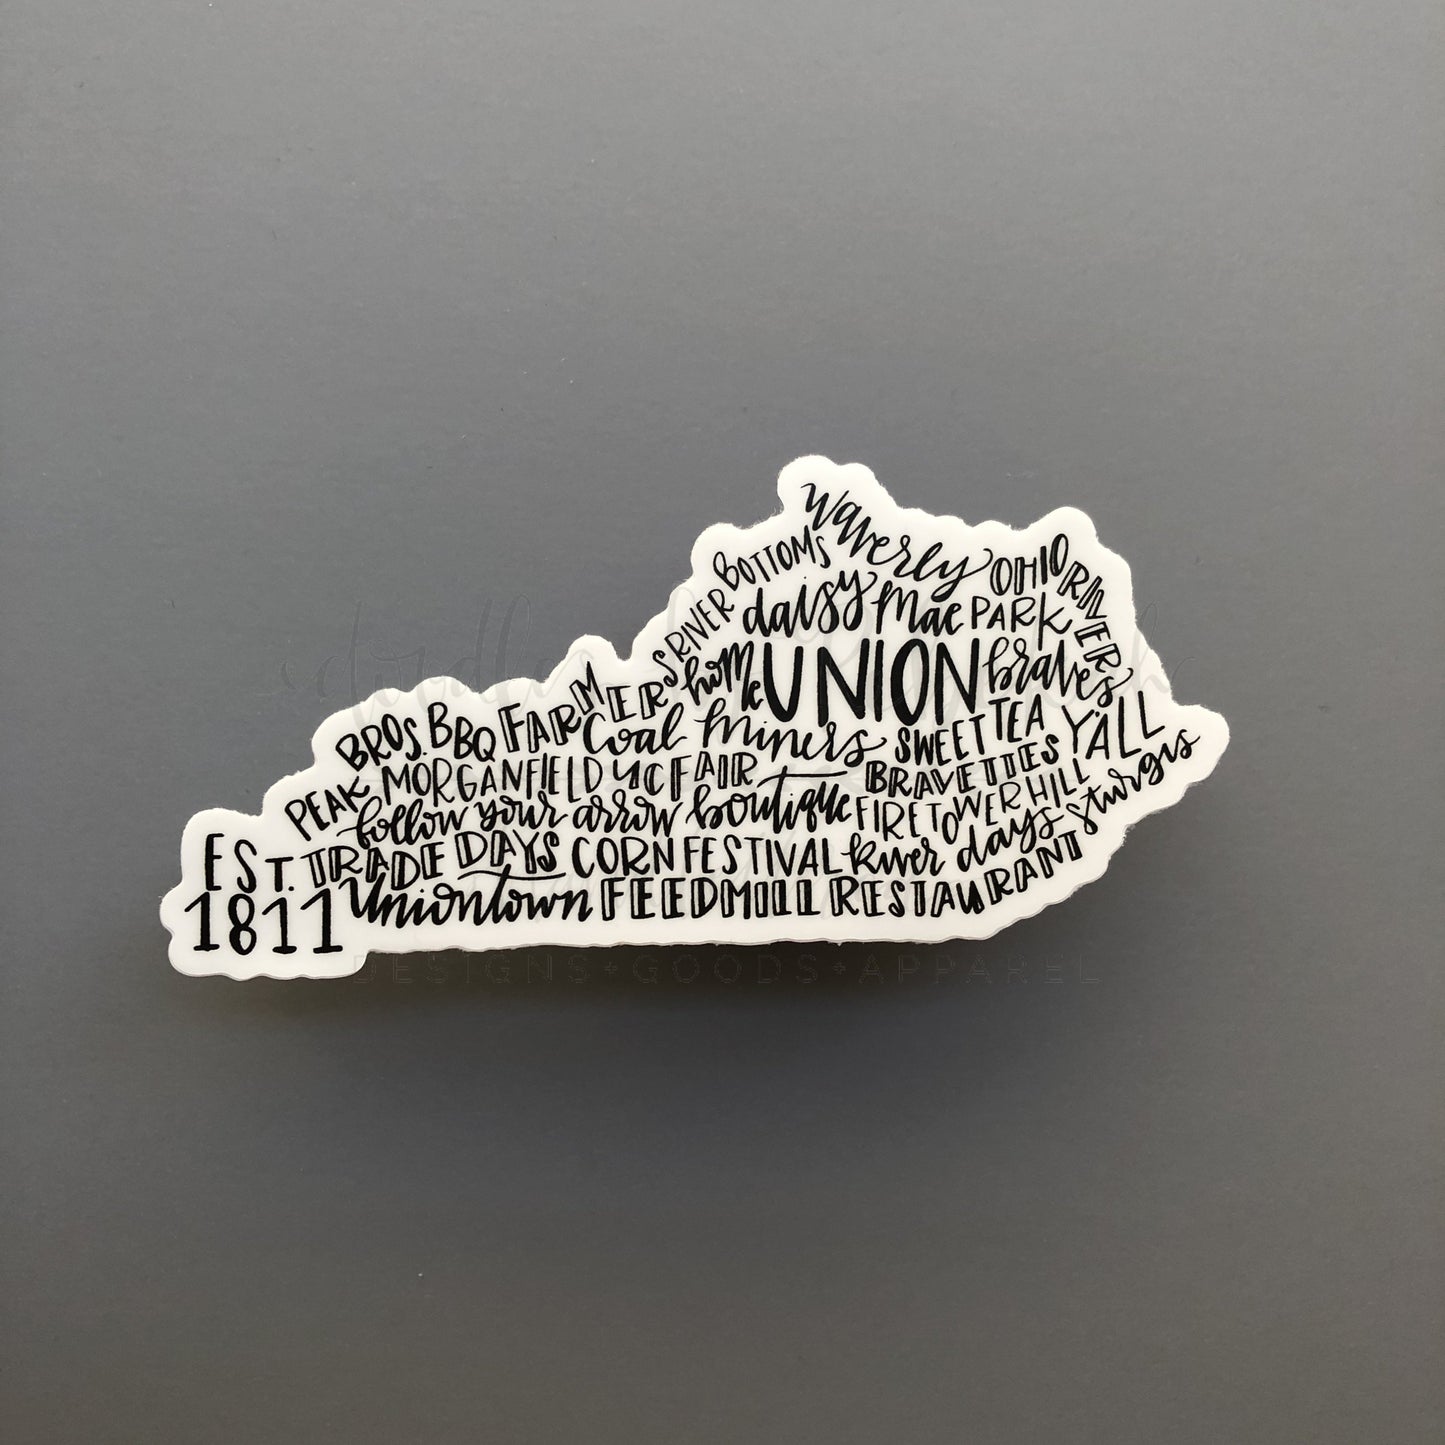 Waverly
OHIO RIVER
RIVER BOTTOMS
daisy Mae PARK
home UNION braves
FARMERS
coal miners SWEET TEA Y'ALL
PEAK BROS. BBQ
MORGANFIELD UC FAIR BRAVETTES
follow your arrow boutique FIRE TOWER HILL Sturgis
EST. TRADE DAYS CORN FESTIVAL River days
1811 Uniontown FEED MILL RESTAURANT
DESIGNS+GOODS+APPAREL